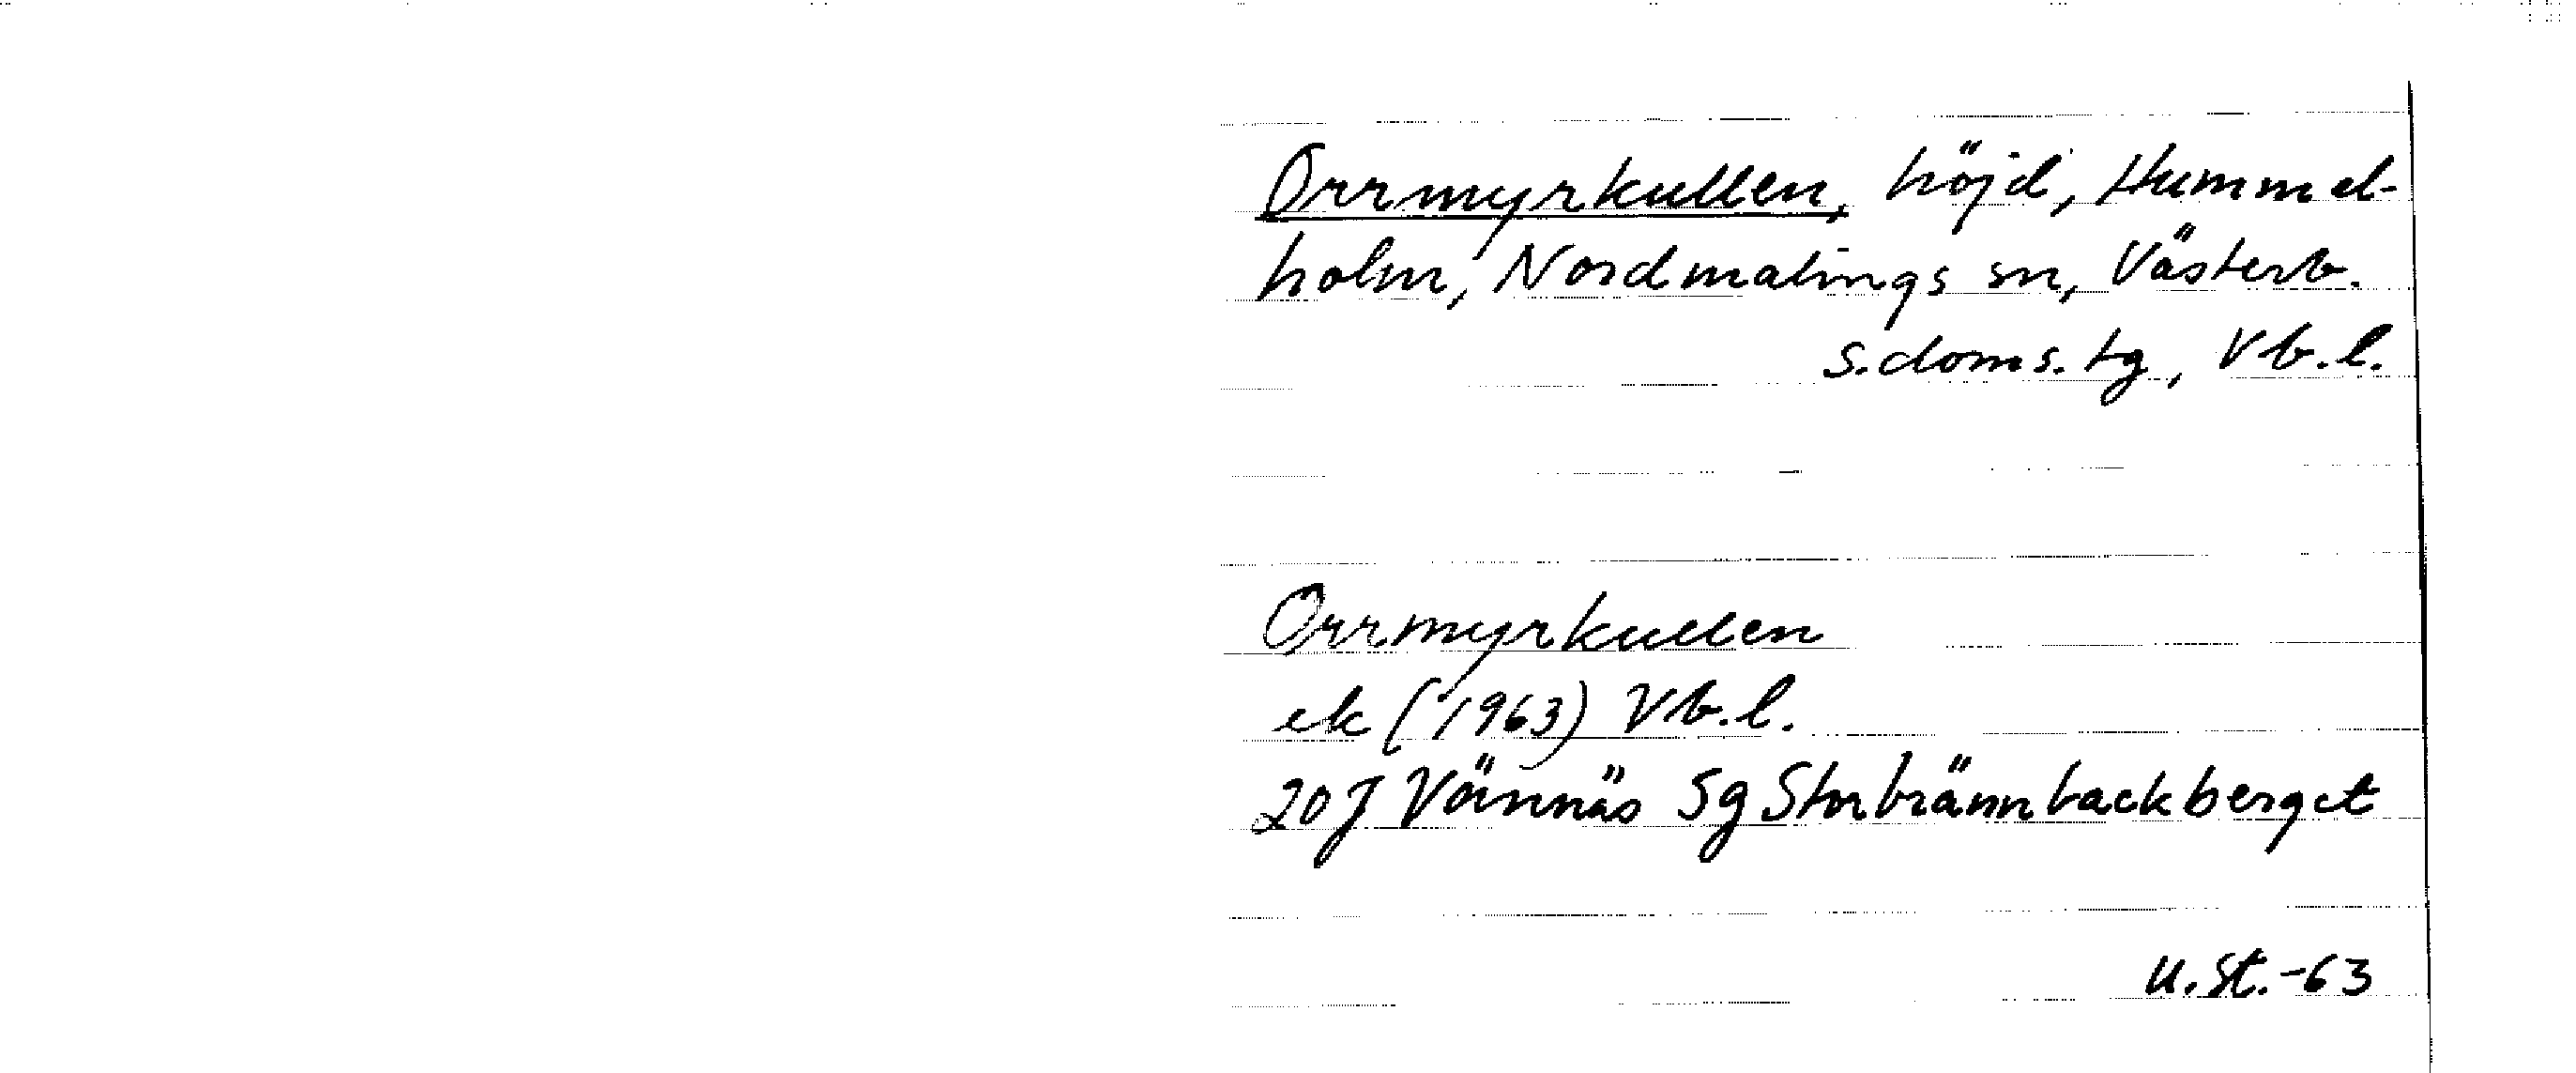 Orrmyrkullen, höjd, Hummel-
holm, Nordmalings sn, Västerb.
s. doms. tg, Vb. l.
Orrmyrkullen
ek (1963) Vb. l.
20J Vännäs 5g Storbrännbackberget
U. St. -63